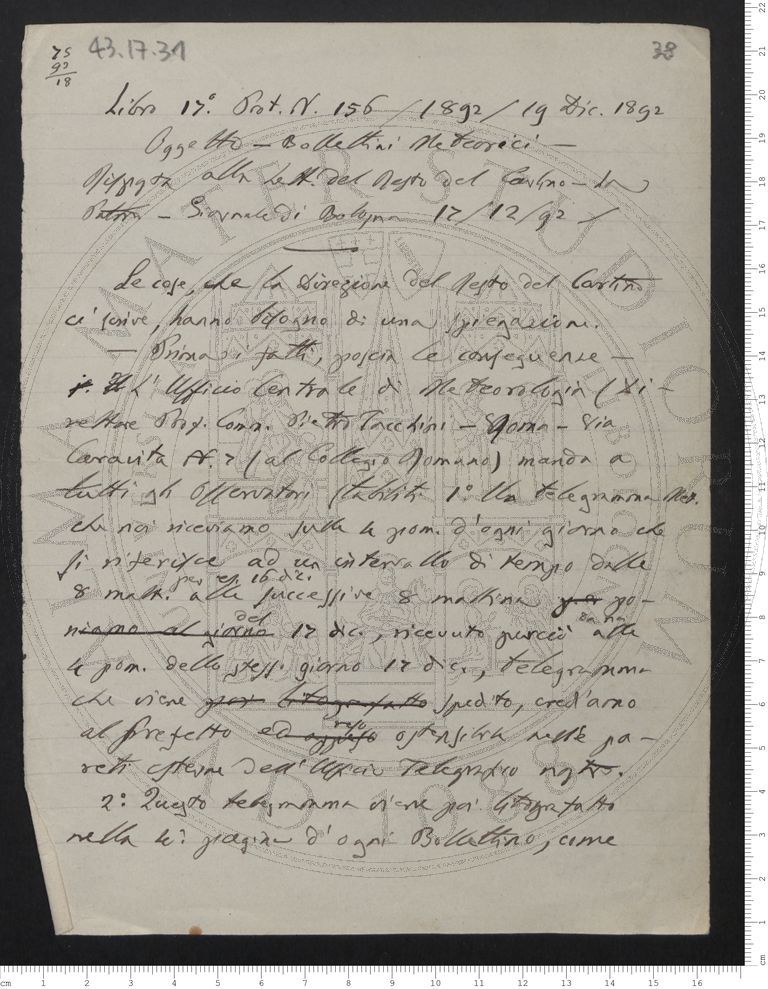 75
92
18
43.17.31
38
Libro 17.° Prot. N. 156 / 1892 / 19 Dic. 1892
Oggetto — Bollettini Meteorici —
Risposta alla Lett. del Resto del Carlino — La
Patria — Giornale di Bologna 17/12/92 —
Le cose, che la Direzione del Resto del Carlino
ci scrive, hanno bisogno di una spiegazione.
— Prima i fatti, poscia le conseguenze —
L'Ufficio Centrale di Meteorologia (Di-
rettore Prof. Comm. Pietro Tacchini — Roma — Via
Caravita N. 7 (al Collegio Romano) manda a
tutti gli Osservatori stabiliti 1° Un telegramma Met.
che noi riceviamo sulle 4 pom. d'ogni giorno che
si riferisce ad un intervallo di tempo dalle
per es. 16 dic.
8 matt. alle successive 8 mattina
del
niamo al giorno 17 dic., ricevuto perciò alle
4 pom. dello stesso giorno 17 dic., telegramma
che viene poi litografato spedito, crediamo
reso
al Prefetto ed ostensibile nelle pa-
reti esterne dell'Ufficio Telegrafico nostro.
2° Questo telegramma viene poi litografato
nella 4ª pagina d'ogni Bollettino, come